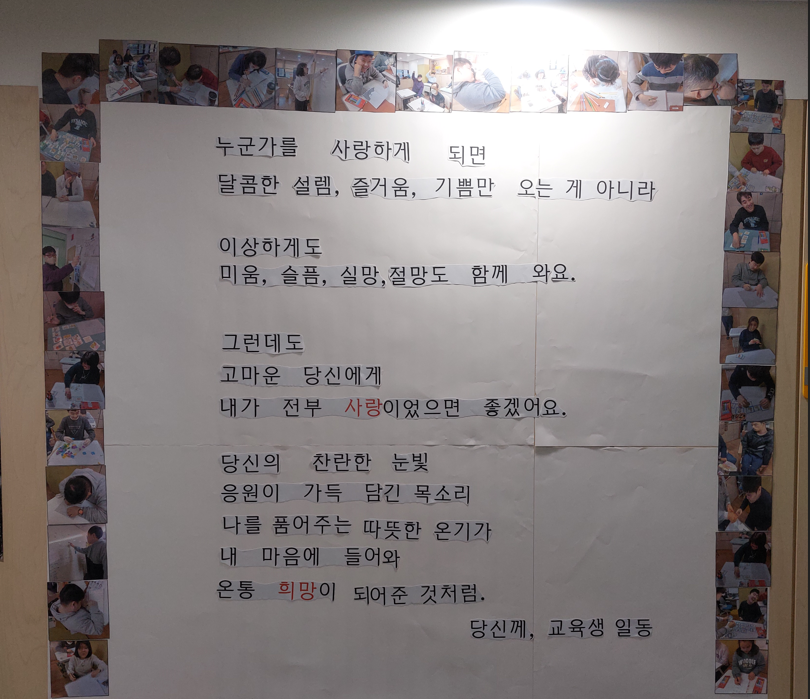 누군가를 사랑하게 되면
달콤한 설렘, 즐거움, 기쁨만 오는 게 아니라
이상하게도
미움, 슬픔, 실망,절망도 함께 와요.
그런데도
고마운 당신에게
내가 전부 사랑이었으면 좋겠어요.
당신의 찬란한 눈빛
응원이 가득 담긴 목소리
나를 품어주는 따뜻한 온기가
내 마음에 들어와
온통 희망이 되어준 것처럼.
당신께, 교육생 일동